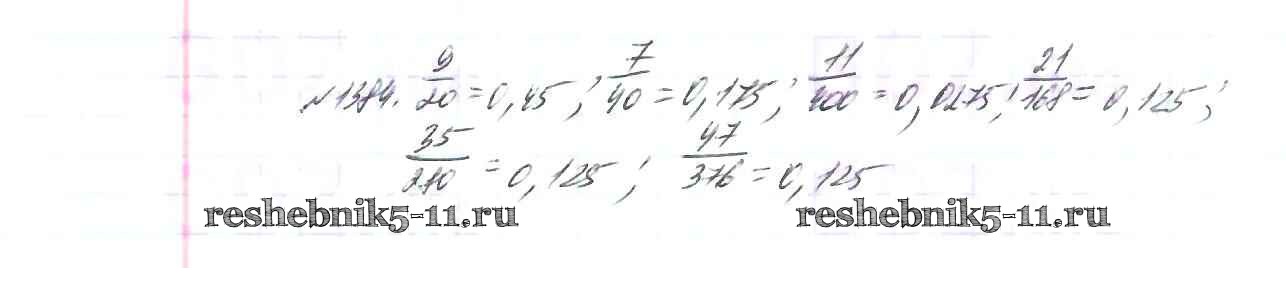 №1384. 9/20 = 0,45; 7/40 = 0,175; 11/400 = 0,0275; 21/168 = 0,125;
35/280 = 0,125; 47/376 = 0,125
reshebnik5-11.ru reshebnik5-11.ru